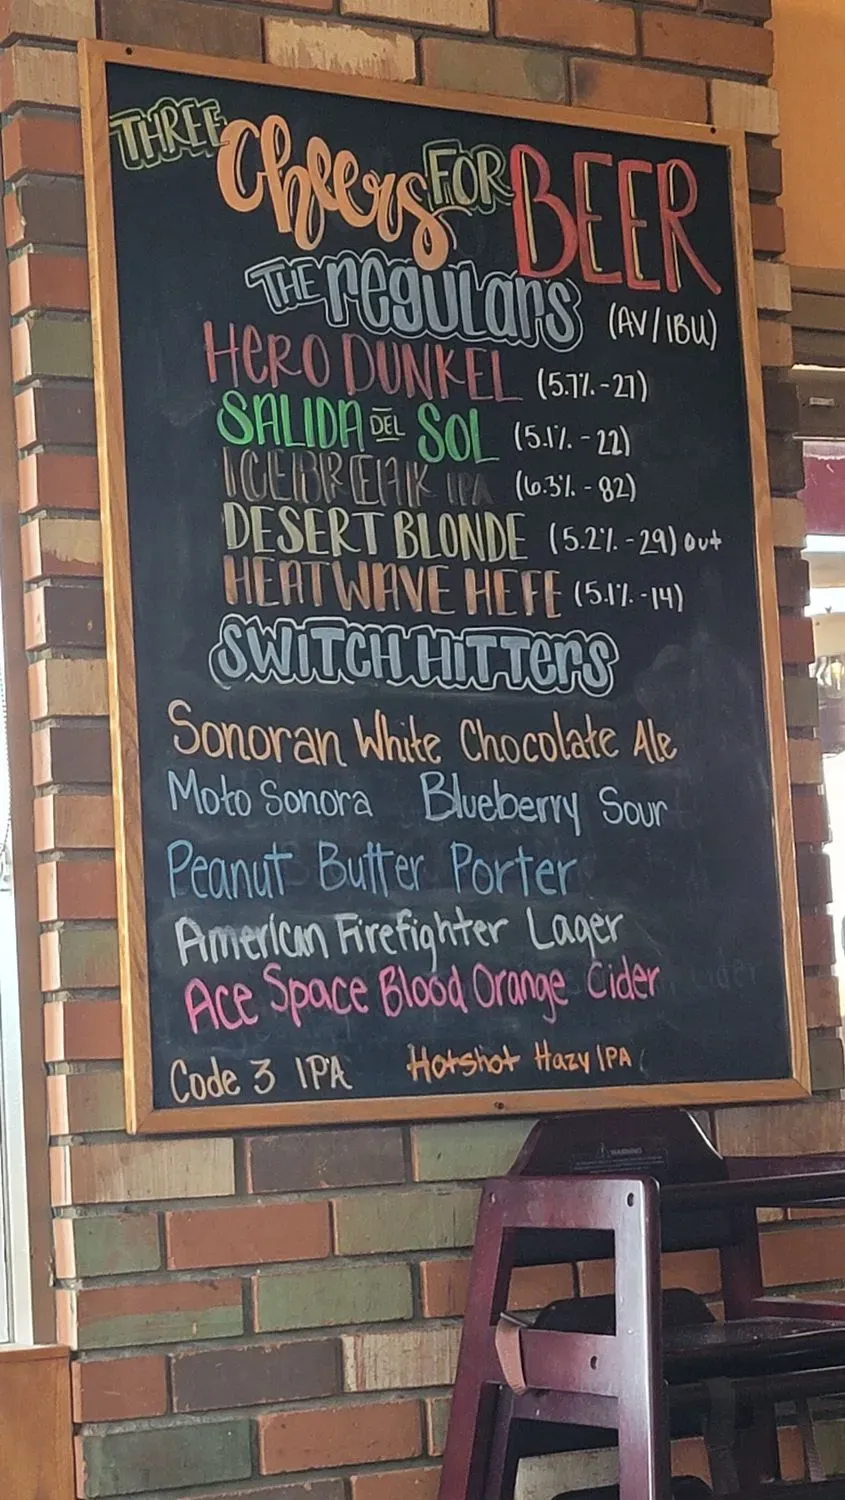 THREE Cheers FOR BEER
THE regulars (AV/IBU)
HERO DUNKEL (5.7%.-27)
SALIDA DEL SOL (5.1%.-22)
ICEBREAK IPA (6.3%.-82)
DESERT BLONDE (5.2%.-29) out
HEATWAVE HEFE (5.1%.-14)
SWITCH HITTers
Sonoran White Chocolate Ale
Moto Sonora Blueberry Sour
Peanut Butter Porter
American Firefighter Lager
Ace Space Blood Orange Cider
Code 3 IPA Hotshot Hazy IPA
WARNING